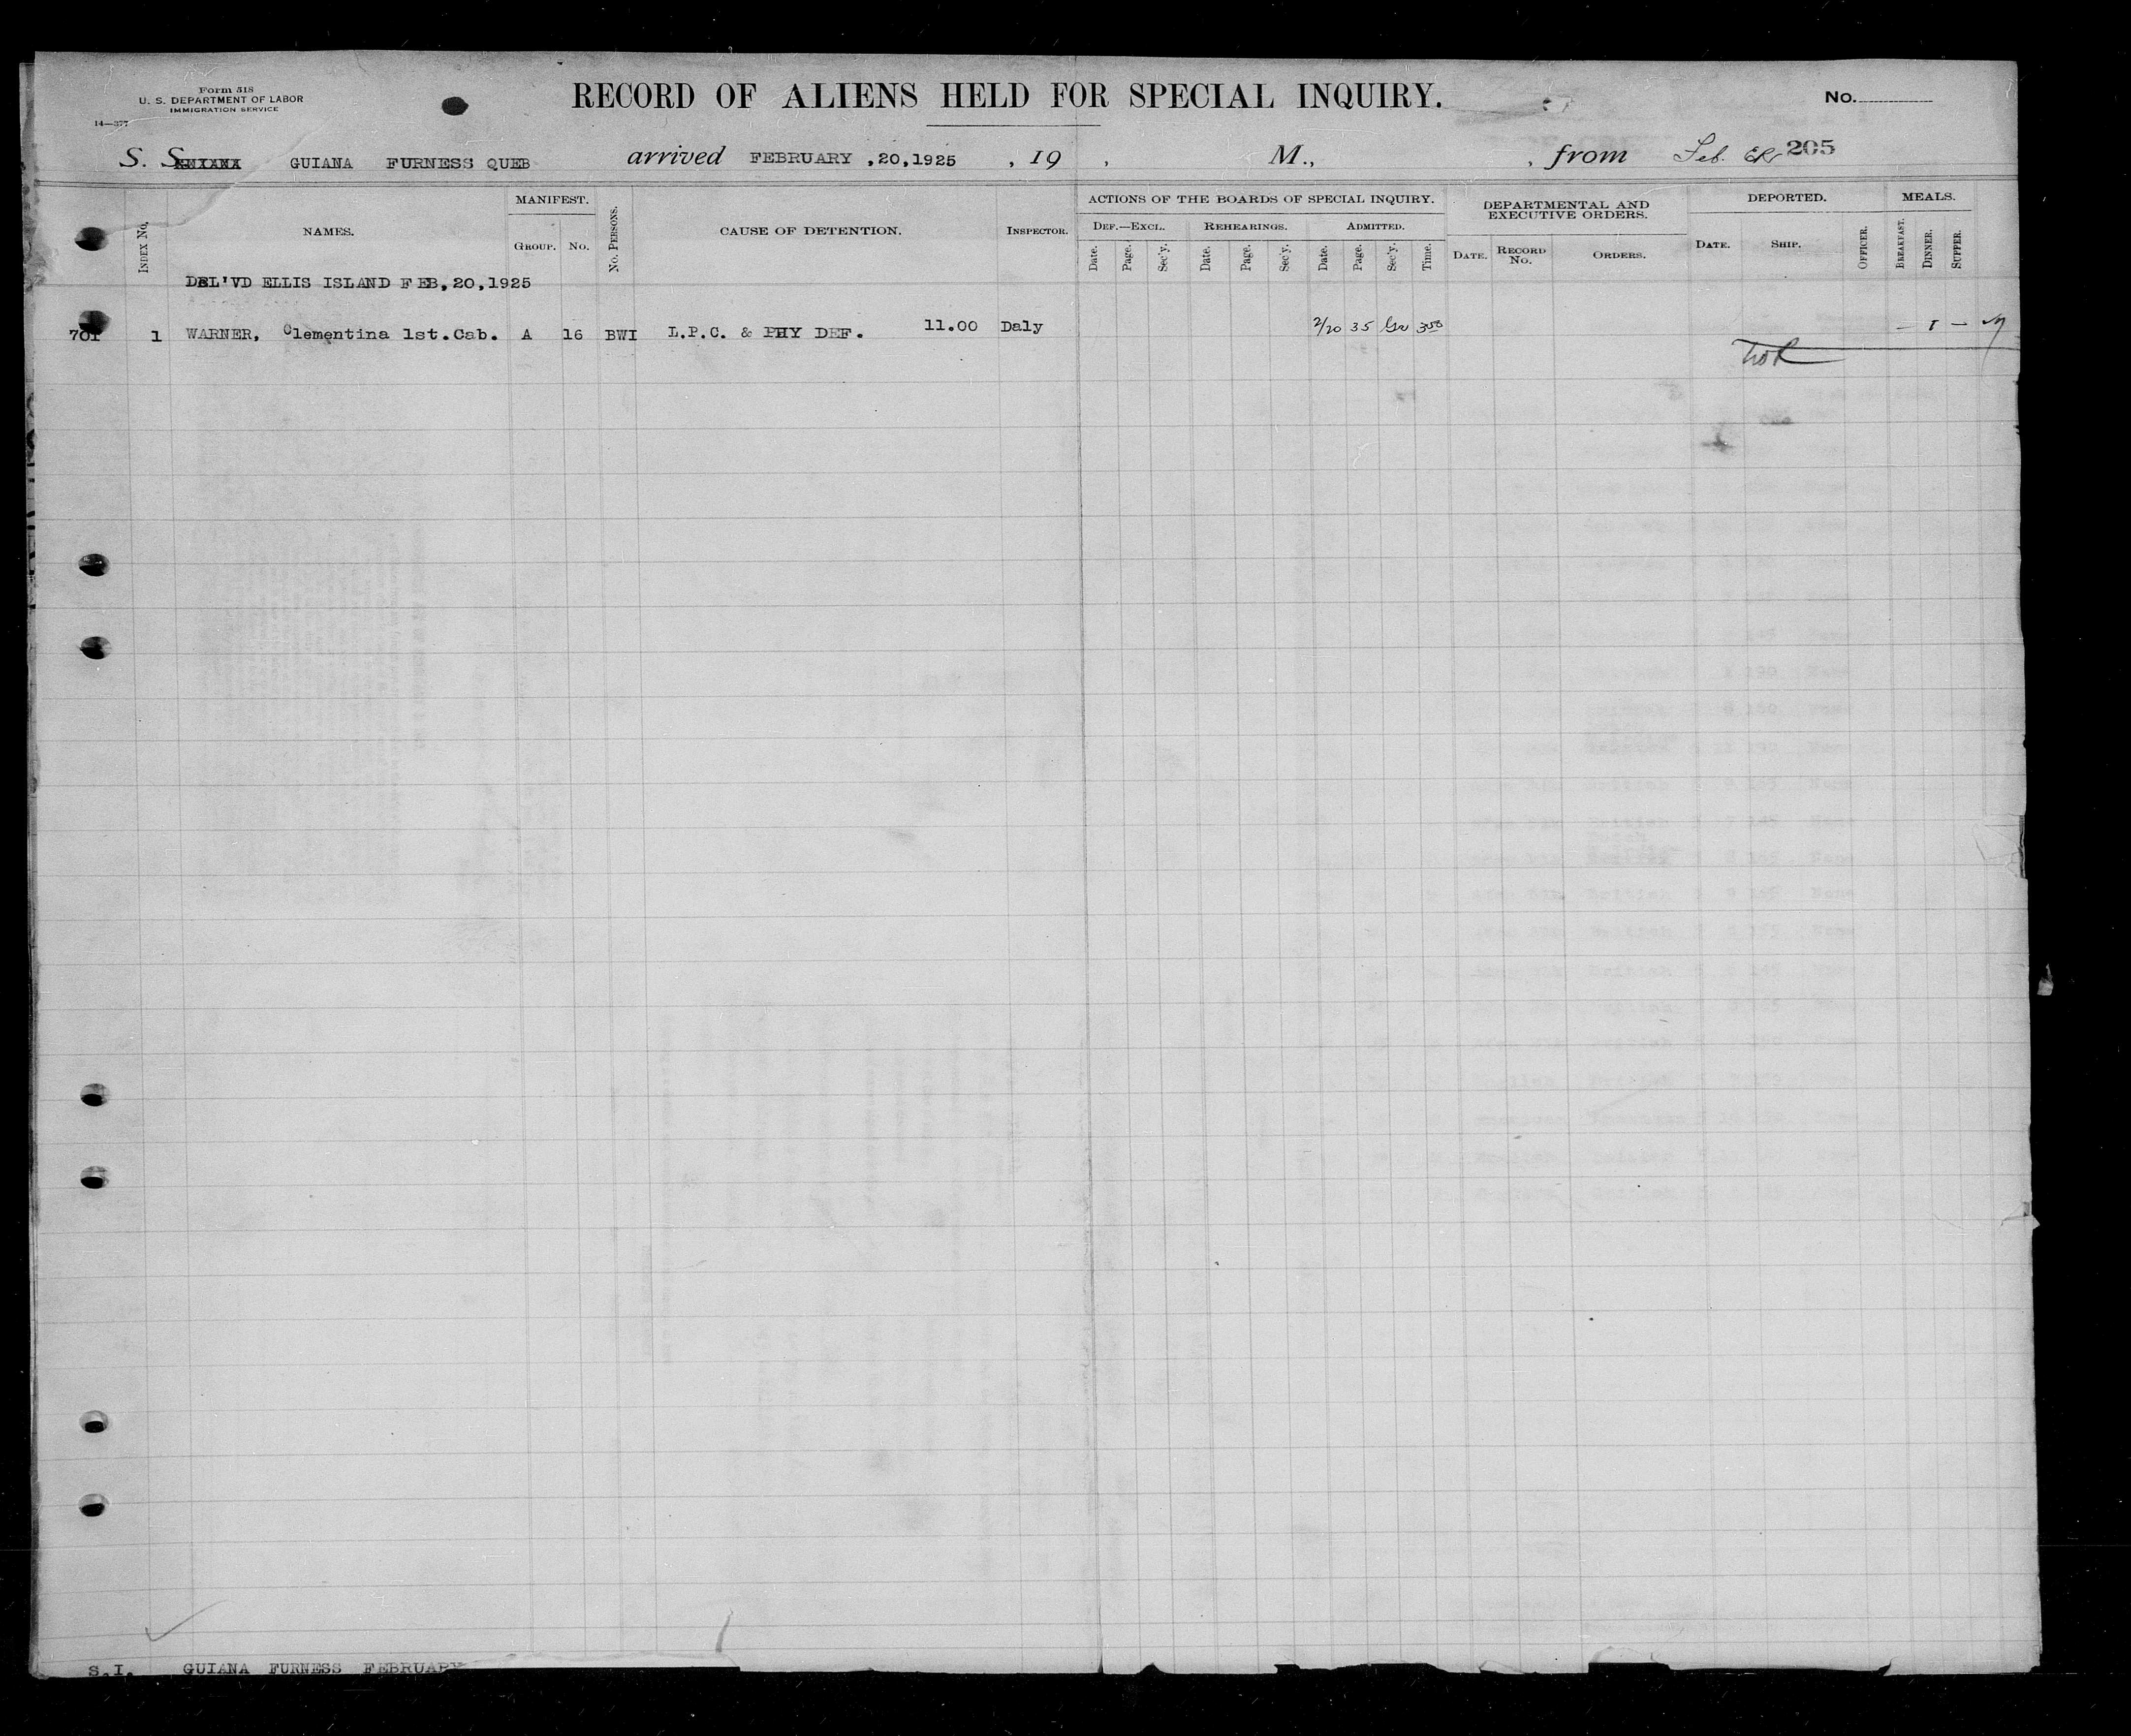 Form 518
U. S. DEPARTMENT OF LABOR
IMMIGRATION SERVICE
14—377
RECORD OF ALIENS HELD FOR SPECIAL INQUIRY.
No.
S. S. GUIANA GUIANA FURNESS QUEB arrived FEBRUARY ,20,1925 , 19 , M., , from Feb. 205
INDEX No. NAMES. MANIFEST. GROUP. No. No. PERSONS. CAUSE OF DETENTION. INSPECTOR. ACTIONS OF THE BOARDS OF SPECIAL INQUIRY. DEPARTMENTAL AND EXECUTIVE ORDERS. DEPORTED. MEALS.
DEF.—EXCL. REHEARINGS. ADMITTED.
Date. Page. Sec'y. Date. Page. Sec'y. Date. Page. Sec'y. Time. DATE. RECORD No. ORDERS. DATE. SHIP. OFFICER. BREAKFAST. DINNER. SUPPER.
DEL'VD ELLIS ISLAND FEB,20,1925
701 1 WARNER, Clementina 1st.Cab. A 16 BWI L.P.C. & PHY DEF. 11.00 Daly 2/20 35 – 1 –
S.I. GUIANA FURNESS FEBRUARY